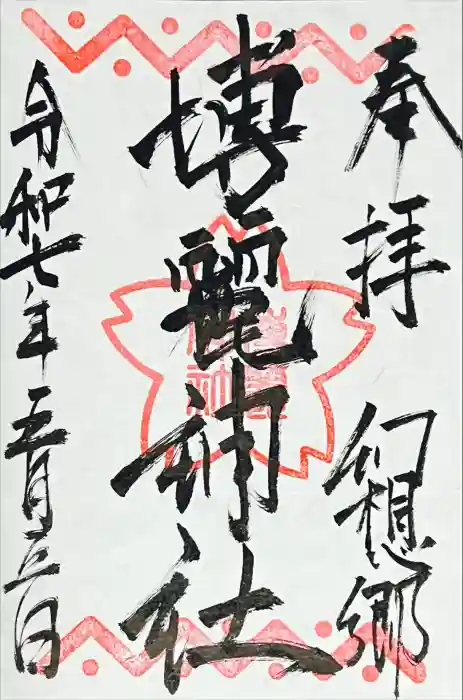 奉拝 幻想郷
博麗神社
令和七年五月三日